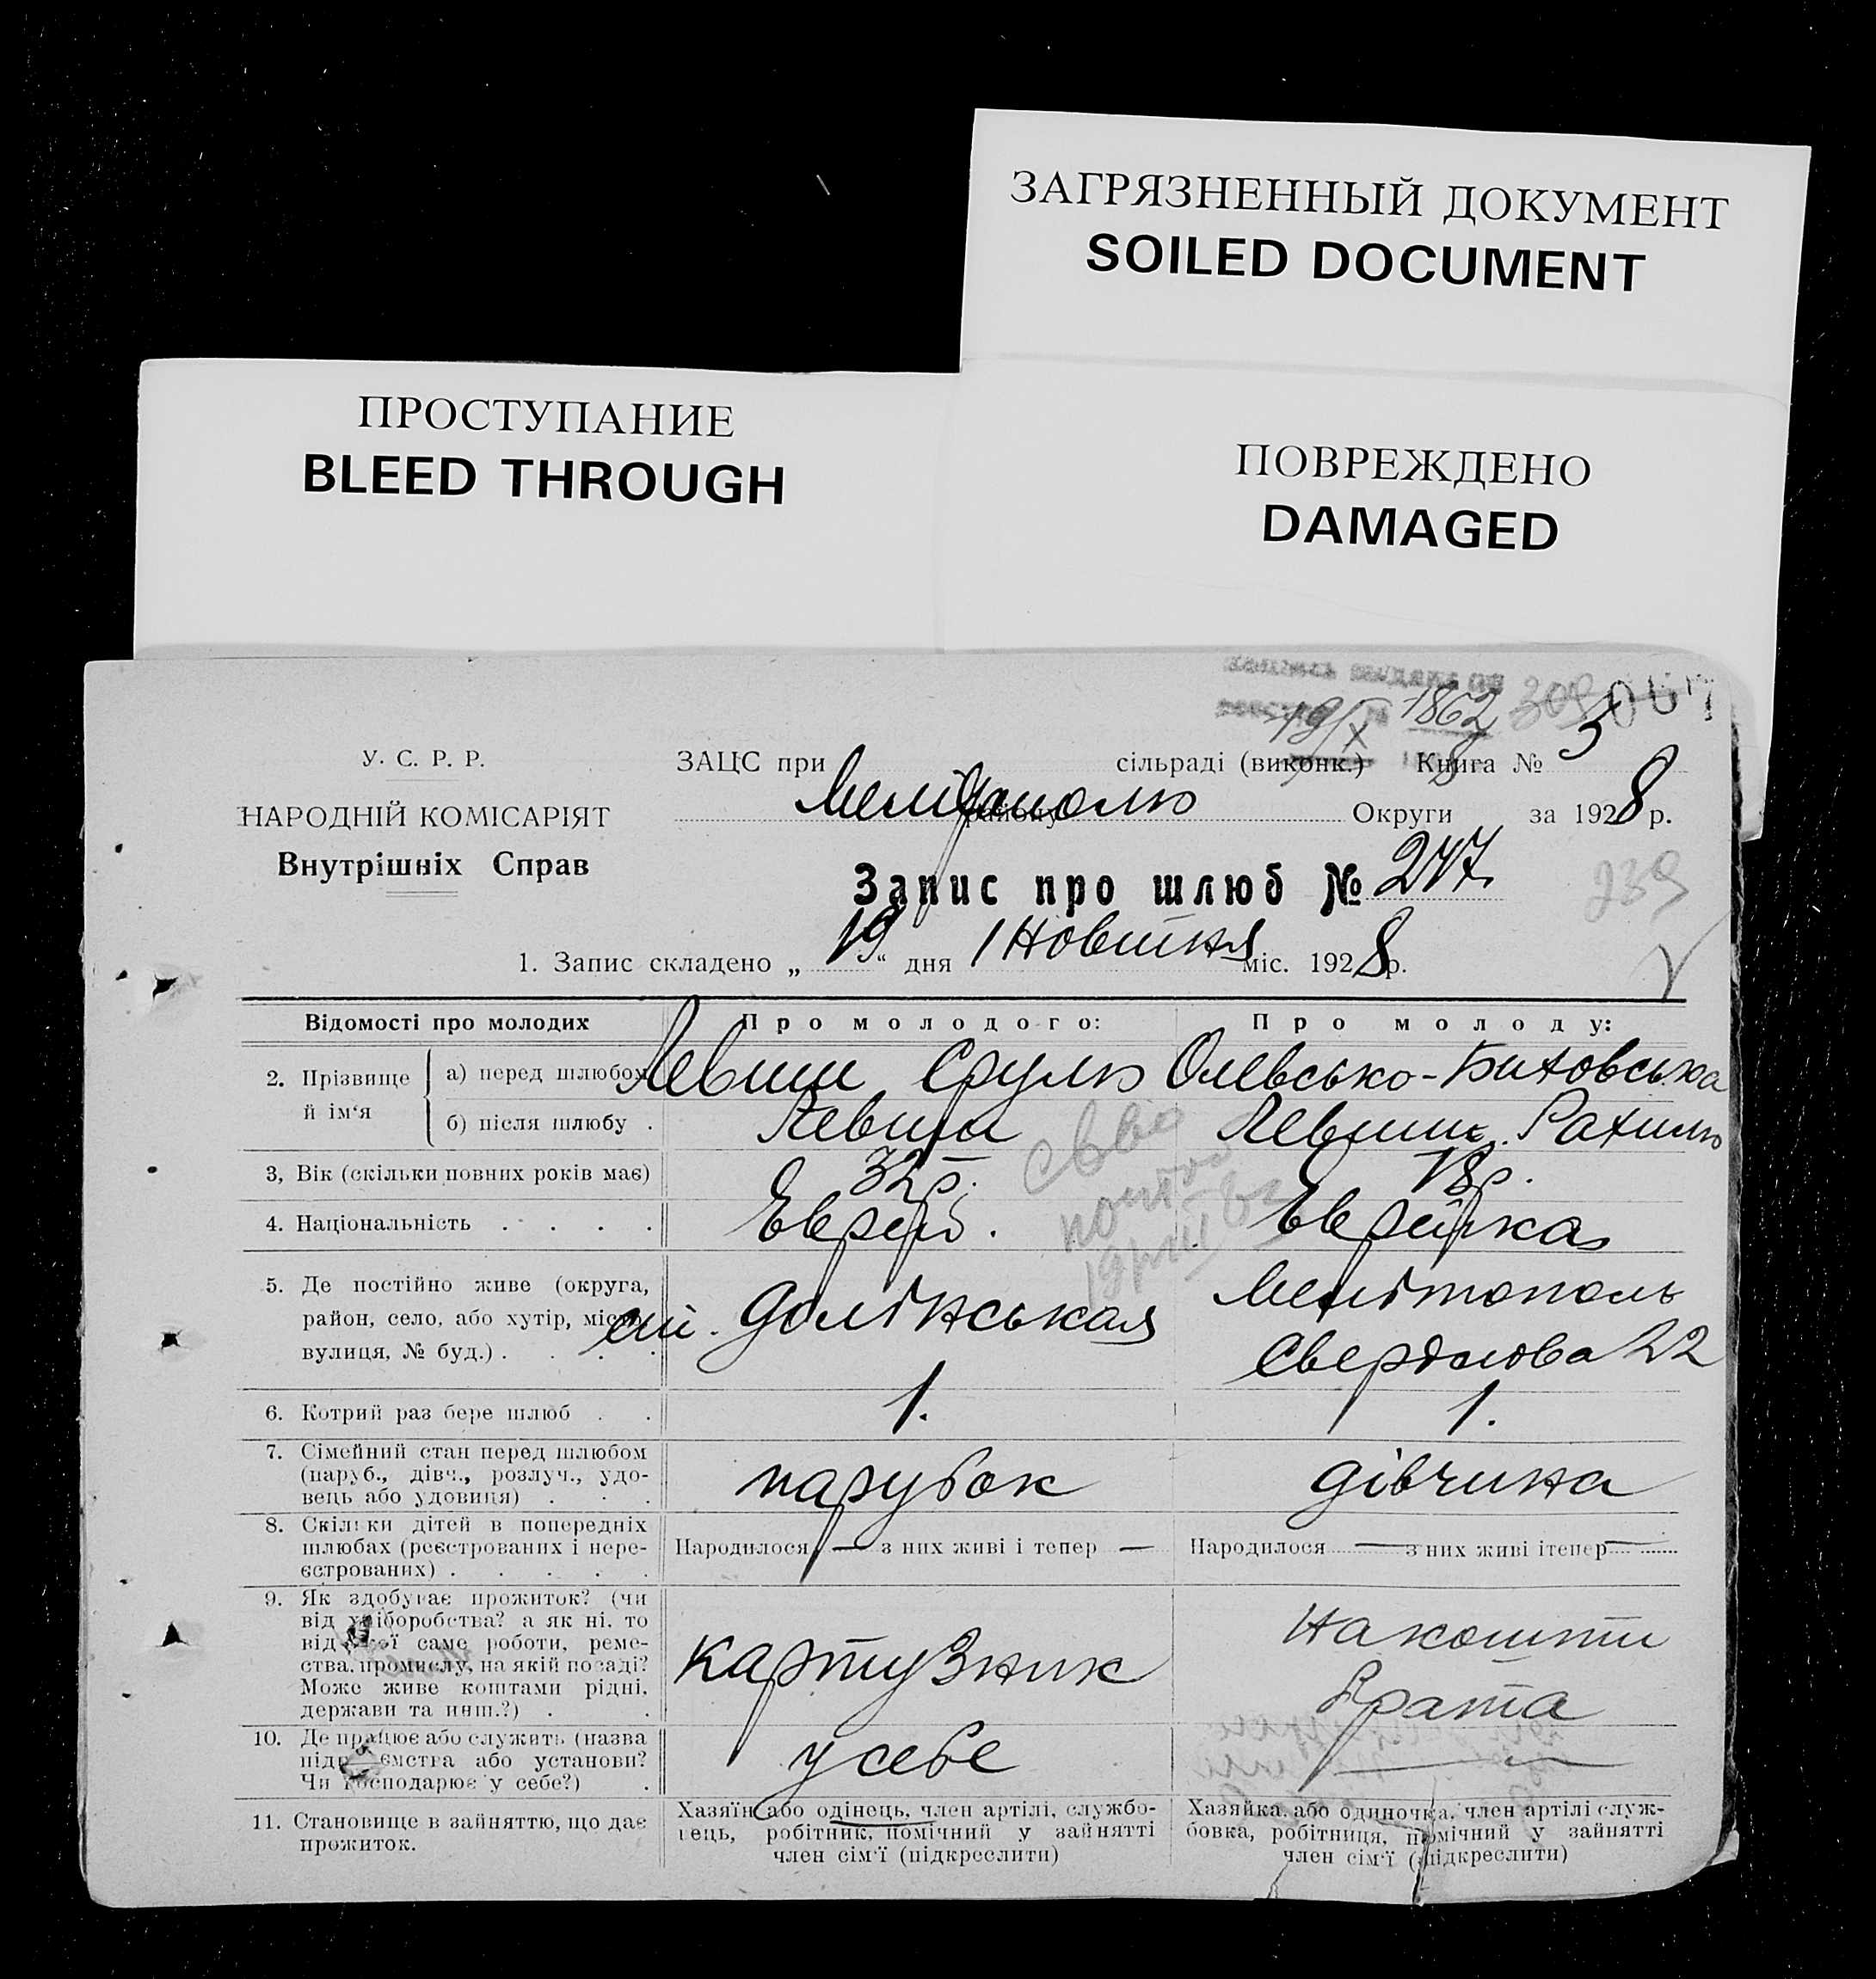 ЗАГРЯЗНЕННЫЙ ДОКУМЕНТ
SOILED DOCUMENT
ПРОСТУПАНИЕ
BLEED THROUGH
ПОВРЕЖДЕНО
DAMAGED
19/X 1862 309
У. С. Р. Р.
НАРОДНІЙ КОМІСАРІЯТ
Внутрішніх Справ
ЗАЦС при сільраді (виконк.) Книга № 3
району Округи за 1928 р.
Запис про шлюб № 247
239
1. Запис складено „19“ дня Жовтня міс. 1928 р.
Відомості про молодих
Про молодого:
Про молоду:
2. Прізвище й ім‘я
а) перед шлюбом
Левин Сруль
Олевсько-Биховська
б) після шлюбу .
Левин
Левин Рахиль
3, Вік (скільки повних років має)
32 р.
18 р.
4. Національність . . . .
Еврей.
Еврейка
5. Де постійно живе (округа,
район, село, або хутір, місто,
вулиця, № буд.) . . . .
ст. Долінськая
Мелітополь
Свердлова 22
6. Котрий раз бере шлюб . .
1.
1.
7. Сімейний стан перед шлюбом
(паруб., дівч., розлуч., удо-
вець або удовиця) . . .
парубок
дівчина
8. Скільки дітей в попередніх
шлюбах (реєстрованих і нере-
єстрованих) . . . . .
Народилося — з них живі і тепер —
Народилося — з них живі ітепер —
9. Як здобуває прожиток? (чи
від хліборобства? а як ні, то
від якої саме роботи, реме-
ства, промислу, на якій посаді?
Може живе коштами рідні,
держави та инш.?) . .
картузник
На кошти
брата
10. Де працює або служить (назва
підприємства або установи?
Чи господарює у себе?) .
у себе
—
11. Становище в зайняттю, що дає
прожиток.
Хазяїн або одінець, член артілі, службо-
вець, робітник, помічний у зайнятті
член сім‘ї (підкреслити)
Хазяйка, або одиночка, член артілі служ-
бовка, робітниця, помічний у зайнятті
член сім‘ї (підкреслити)